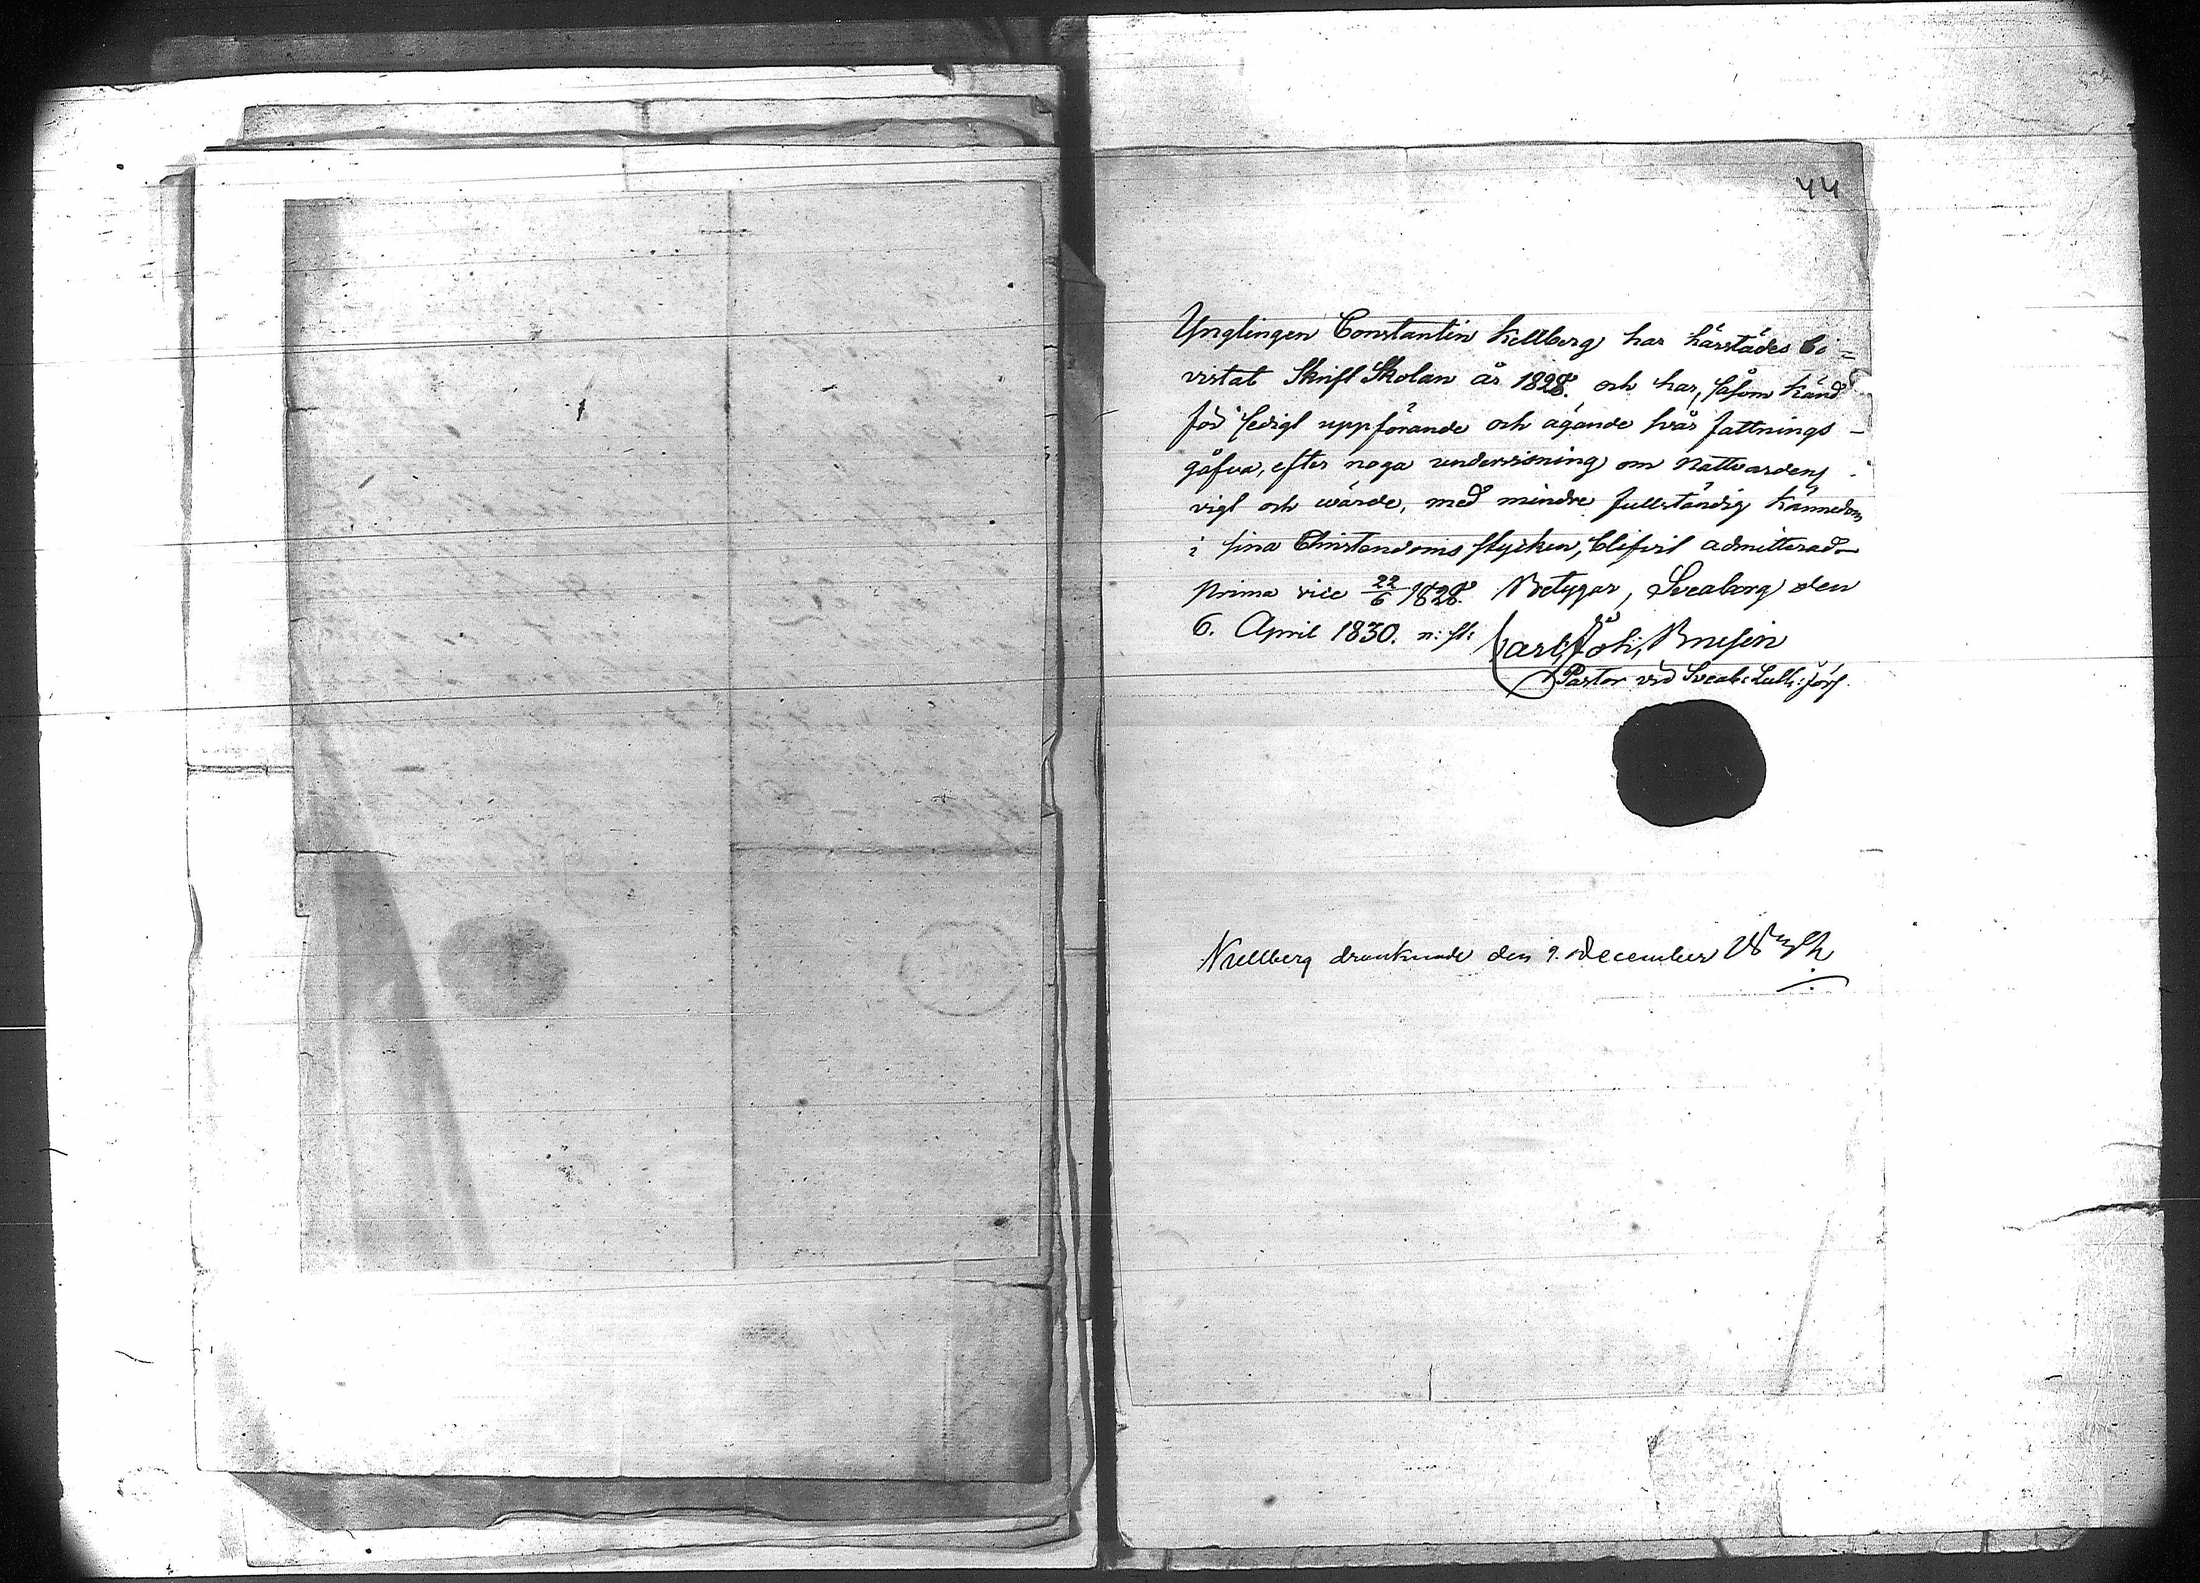 44
Ynglingen Constantin Kellberg har härstädes bi=
vistat Skrift Skolan år 1828. och har, såsom känd
för sedigt uppförande och ägande svår fattnings-
gåfva, efter noga undervisning om nattvardens
vigt och wärde, med mindre fullständig kännedom
i sina Christendoms stycken, blifvit admitterad
prima vice 22/6 1828. Betygar, Sveaborg den
6. April 1830. n: st:
Carl Joh:
Pastor vid Sveab: Luth: förs.
drunknade den 9. December